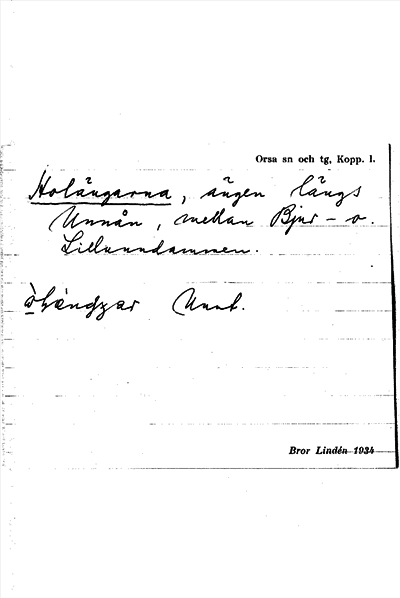 Orsa sn och tg, Kopp. l.
Holängarna, ängen längs
Unnån, mellan Bjur- o.
Lillunndammen.
Unnt.
Bror Lindén 1934